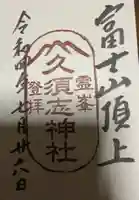 富士山頂上
霊峯
久須志神社
登拝
令和四年七月廿八日